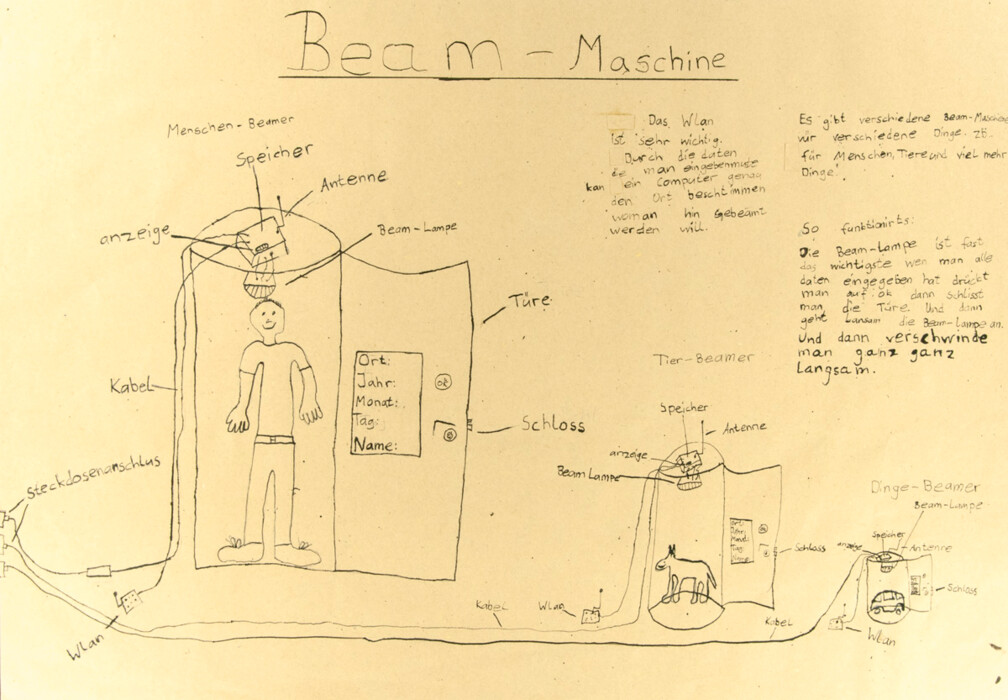 Beam - Maschine
Menschen-Beamer
Speicher
Antenne
anzeige
Beam-Lampe
Türe
Kabel
Ort:
Jahr:
Monat:
Tag:
Name:
ok
Schloss
steckdosenanschlus
Wlan
Das Wlan
ist sehr wichtig.
Durch die daten
die man eingebenmuss
kan ein Computer genau
den Ort beschtimmen
woman hin gebeamt
werden will.
Es gibt verschiedene Beam-Maschien
wir verschiedene Dinge. zB.
für Menschen, Tiere und viel mehr
Dinge!
So funktionirts:
Die Beam-Lampe ist fast
das wichtigste wen man alle
daten eingegeben hat drückt
man auf ok dann schlisst
man die Türe. Und dann
geht Lansam die Beam-Lampe an.
Und dann verschwinde
man ganz ganz
langsam.
Tier-Beamer
Speicher
Antenne
anzeige
Beam Lampe
Ort:
Jahr:
Mond:
Tag:
Name:
Schloss
Kabel
Wlan
Kabel
Dinge-Beamer
Beam-Lampe
Speicher
anzeige
Antenne
Schloss
Wlan